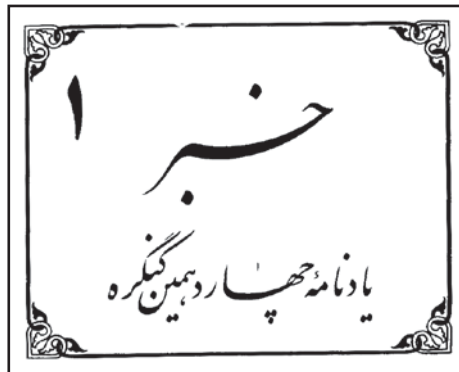 خبر ۱
یادنامهٔ چهاردهمین کنگره